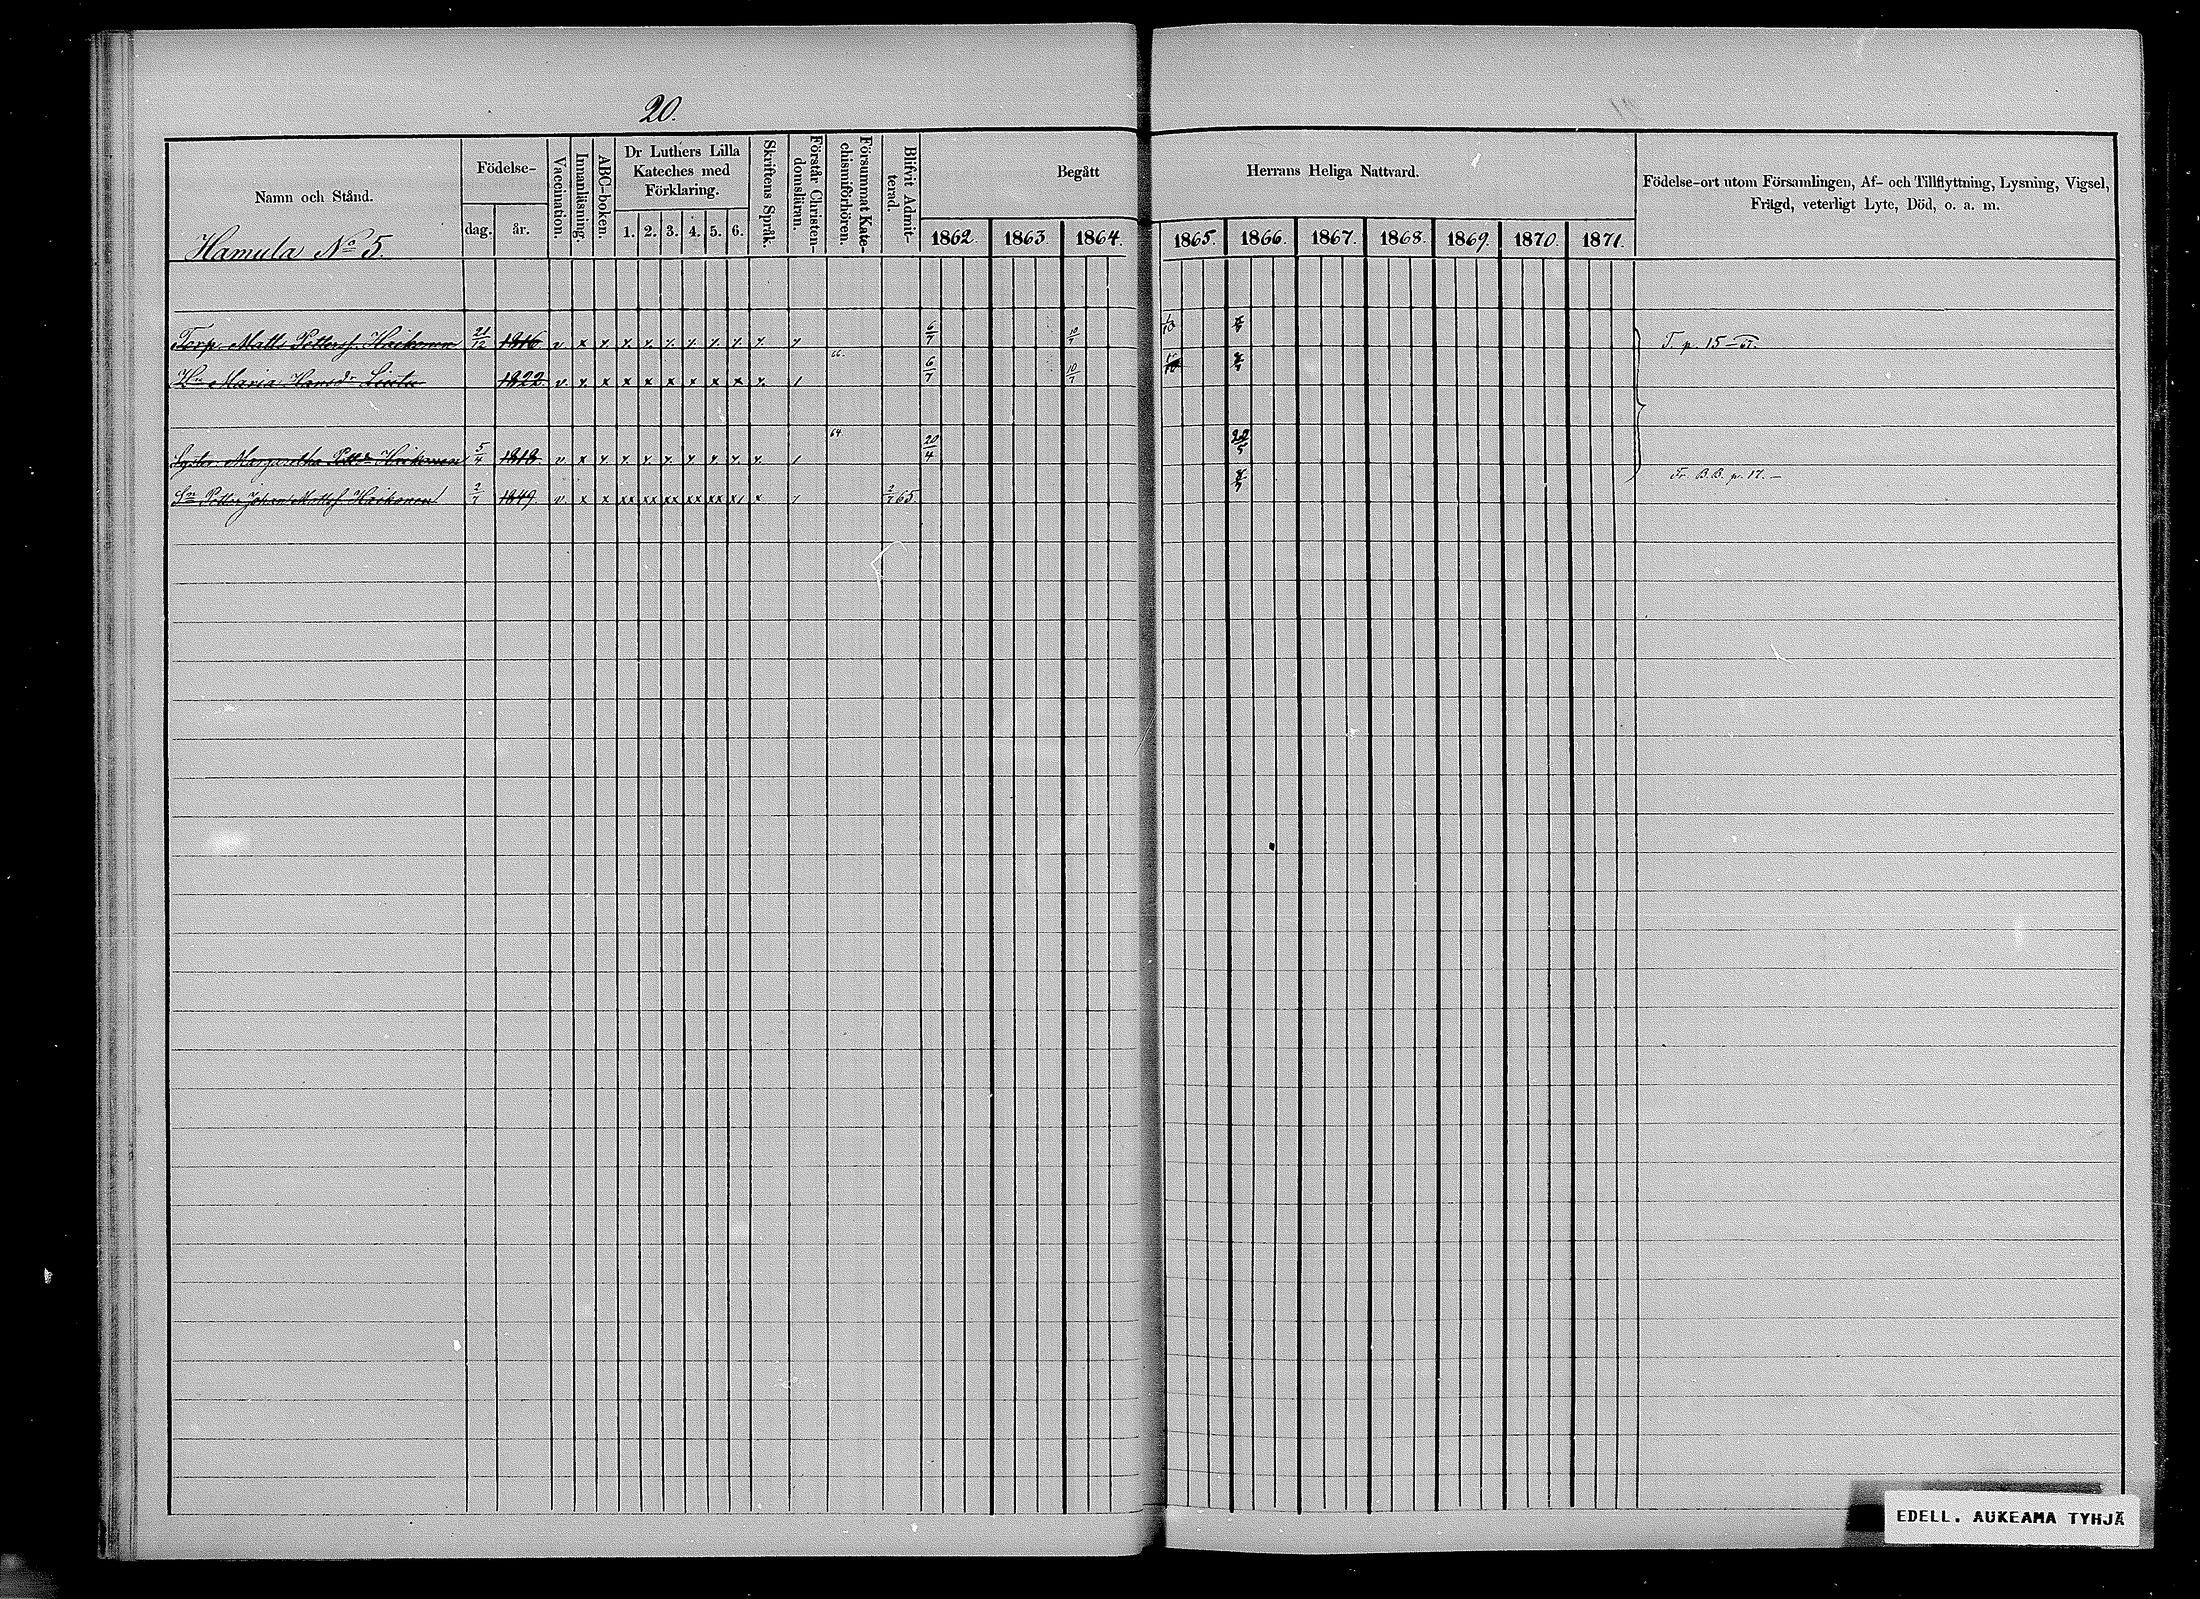 20.
Namn och Stånd.
Födelse-
dag.
år.
Vaccination.
Innanläsning.
ABC-boken.
Dr Luthers Lilla
Kateches med
Förklaring.
1. 2. 3. 4. 5. 6.
Skriftens Språk.
Förstår Christen-
domsläran.
Försummat Kate-
chismiförhören.
Blifvit Admit-
terad.
Begått
Herrans Heliga Nattvard.
1862. 1863 1864. 1865. 1866. 1867. 1868. 1869. 1870. 1871.
Födelse-ort utom Församlingen, Af- och Tillflyttning, Lysning, Vigsel,
Frägd, veterligt Lyte, Död, o. a. m.
Hamula No 5.
Torp. Matts Pettersf. Heikonen 21/12 1816 v x 6/7 10/7
T. p. 15
Hu Maria Hansdr 1822 v 66. 6/7 10/7
Syster Margaretha Pettsdr Heikonen 5/4 1818 v x 64. 20/4
Sn Petter Johan Mattsf Heikonen 2/7 1849 v x x xx xx xx xx xx 65
Fr. B.B. p. 17.
EDELL. AUKEAMA TYHJÄ